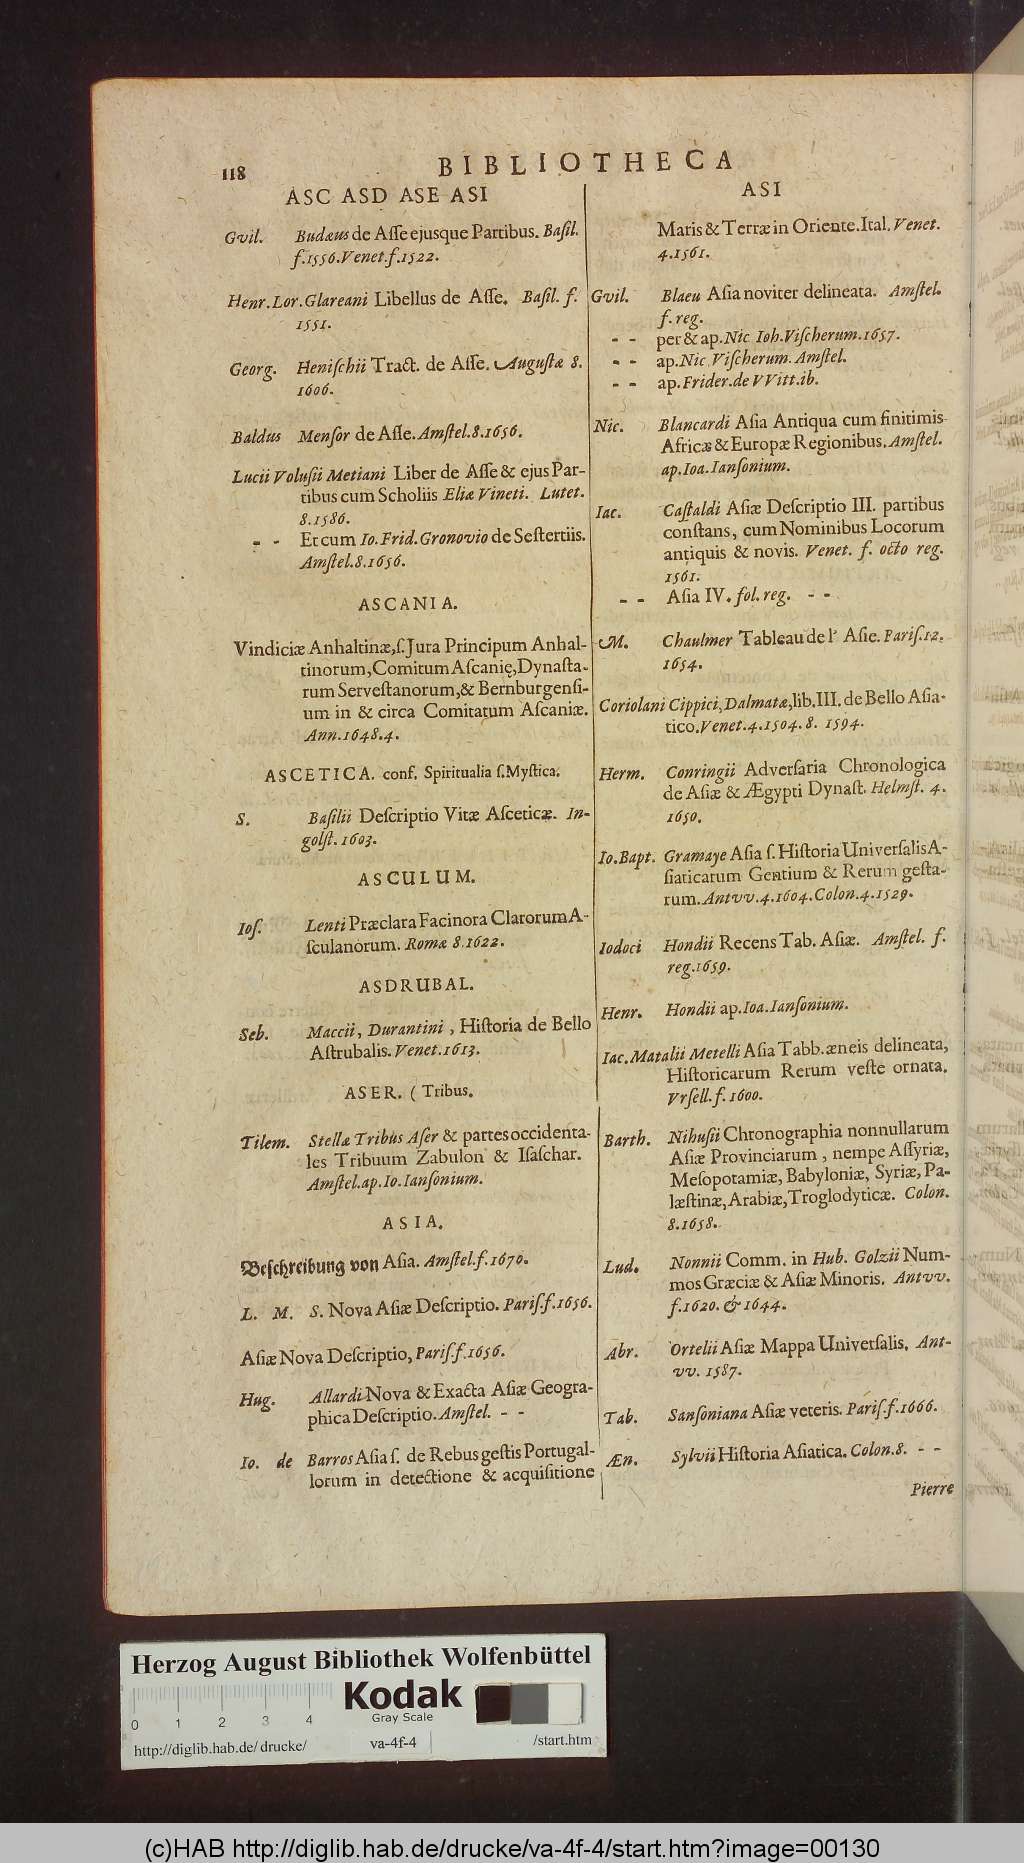 118
BIBLIOTHECA
ASC ASD ASE ASI
Gvil. Budæus de Aſſe ejusque Partibus. Baſil.
f.1556. Venet.f.1522.
Henr. Lor. Glareani Libellus de Aſſe. Baſil. f.
1551.
Georg. Heniſchii Tract. de Aſſe. Auguſtæ 8.
1606.
Baldus Menſor de Aſſe. Amſtel.8.1656.
Lucii Voluſii Metiani Liber de Aſſe & ejus Par-
tibus cum Scholiis Eliæ Vineti. Lutet.
8.1586.
- - Et cum Io. Frid. Gronovio de Seſtertiis.
Amſtel.8.1656.
ASCANIA.
Vindiciæ Anhaltinæ, ſ. Jura Principum Anhal-
tinorum, Comitum Aſcanię, Dynaſta-
rum Serveſtanorum, & Bernburgenſi-
um in & circa Comitatum Aſcaniæ.
Ann.1648.4.
ASCETICA. conf. Spiritualia ſ. Myſtica.
S. Baſilii Deſcriptio Vitæ Aſceticæ. In-
golſt. 1603.
ASCULUM.
Ioſ. Lenti Præclara Facinora Clarorum A-
ſculanorum. Romæ 8.1622.
ASDRUBAL.
Seb. Maccii, Durantini, Hiſtoria de Bello
Aſtrubalis. Venet.1613.
ASER. (Tribus.
Tilem. Stellæ Tribus Aſer & partes occidenta-
les Tribuum Zabulon & Iſaſchar.
Amſtel. ap. Io. Ianſonium.
ASIA.
Beſchreibung von Aſia. Amſtel.f.1670.
L. M. S. Nova Aſiæ Deſcriptio. Pariſ.f.1656.
Aſiæ Nova Deſcriptio, Pariſ.f.1656.
Hug. Allardi Nova & Exacta Aſiæ Geogra-
phica Deſcriptio. Amſtel. - -
Io. de Barros Aſia ſ. de Rebus geſtis Portugal-
lorum in detectione & acquiſitione
ASI
Maris & Terræ in Oriente. Ital. Venet.
4.1561.
Gvil. Blaeu Aſia noviter delineata. Amſtel.
f. reg.
- - per & ap. Nic Ioh. Viſcherum. 1657.
- - ap. Nic Viſcherum. Amſtel.
- - ap. Frider. de VVitt. ib.
Nic. Blancardi Aſia Antiqua cum finitimis
Africæ & Europæ Regionibus. Amſtel.
ap. Ioa. Ianſonium.
Iac. Caſtaldi Aſiæ Deſcriptio III. partibus
conſtans, cum Nominibus Locorum
antiquis & novis. Venet. f. octo reg.
1561.
- - Aſia IV. fol. reg. - -
M. Chaulmer Tableau de l' Aſie. Pariſ.12.
1654.
Coriolani Cippici, Dalmatæ, lib. III. de Bello Aſia-
tico. Venet.4.1504. 8. 1594.
Herm. Conringii Adverſaria Chronologica
de Aſiæ & Ægypti Dynaſt. Helmſt. 4.
1650.
Io. Bapt. Gramaye Aſia ſ. Hiſtoria Univerſalis A-
ſiaticarum Gentium & Rerum geſta-
rum. Antvv.4.1604. Colon.4.1529.
Iodoci Hondii Recens Tab. Aſiæ. Amſtel. f.
reg.1659.
Henr. Hondii ap. Ioa. Ianſonium.
Iac. Matalii Metelli Aſia Tabb. æneis delineata,
Hiſtoricarum Rerum veſte ornata.
Vrſell. f. 1600.
Barth. Nihuſii Chronographia nonnullarum
Aſiæ Provinciarum, nempe Aſſyriæ,
Meſopotamiæ, Babyloniæ, Syriæ, Pa-
læſtinæ, Arabiæ, Troglodyticæ. Colon.
8.1658.
Lud. Nonnii Comm. in Hub. Golzii Num-
mos Græciæ & Aſiæ Minoris. Antvv.
f.1620. & 1644.
Abr. Ortelii Aſiæ Mappa Univerſalis. Ant-
vv. 1587.
Tab. Sanſoniana Aſiæ veteris. Pariſ.f.1666.
Æn. Sylvii Hiſtoria Aſiatica. Colon.8. - -
Pierre
Herzog August Bibliothek Wolfenbüttel
Kodak
Gray Scale
0 1 2 3 4
http://diglib.hab.de/drucke/ va-4f-4 /start.htm
(c)HAB http://diglib.hab.de/drucke/va-4f-4/start.htm?image=00130